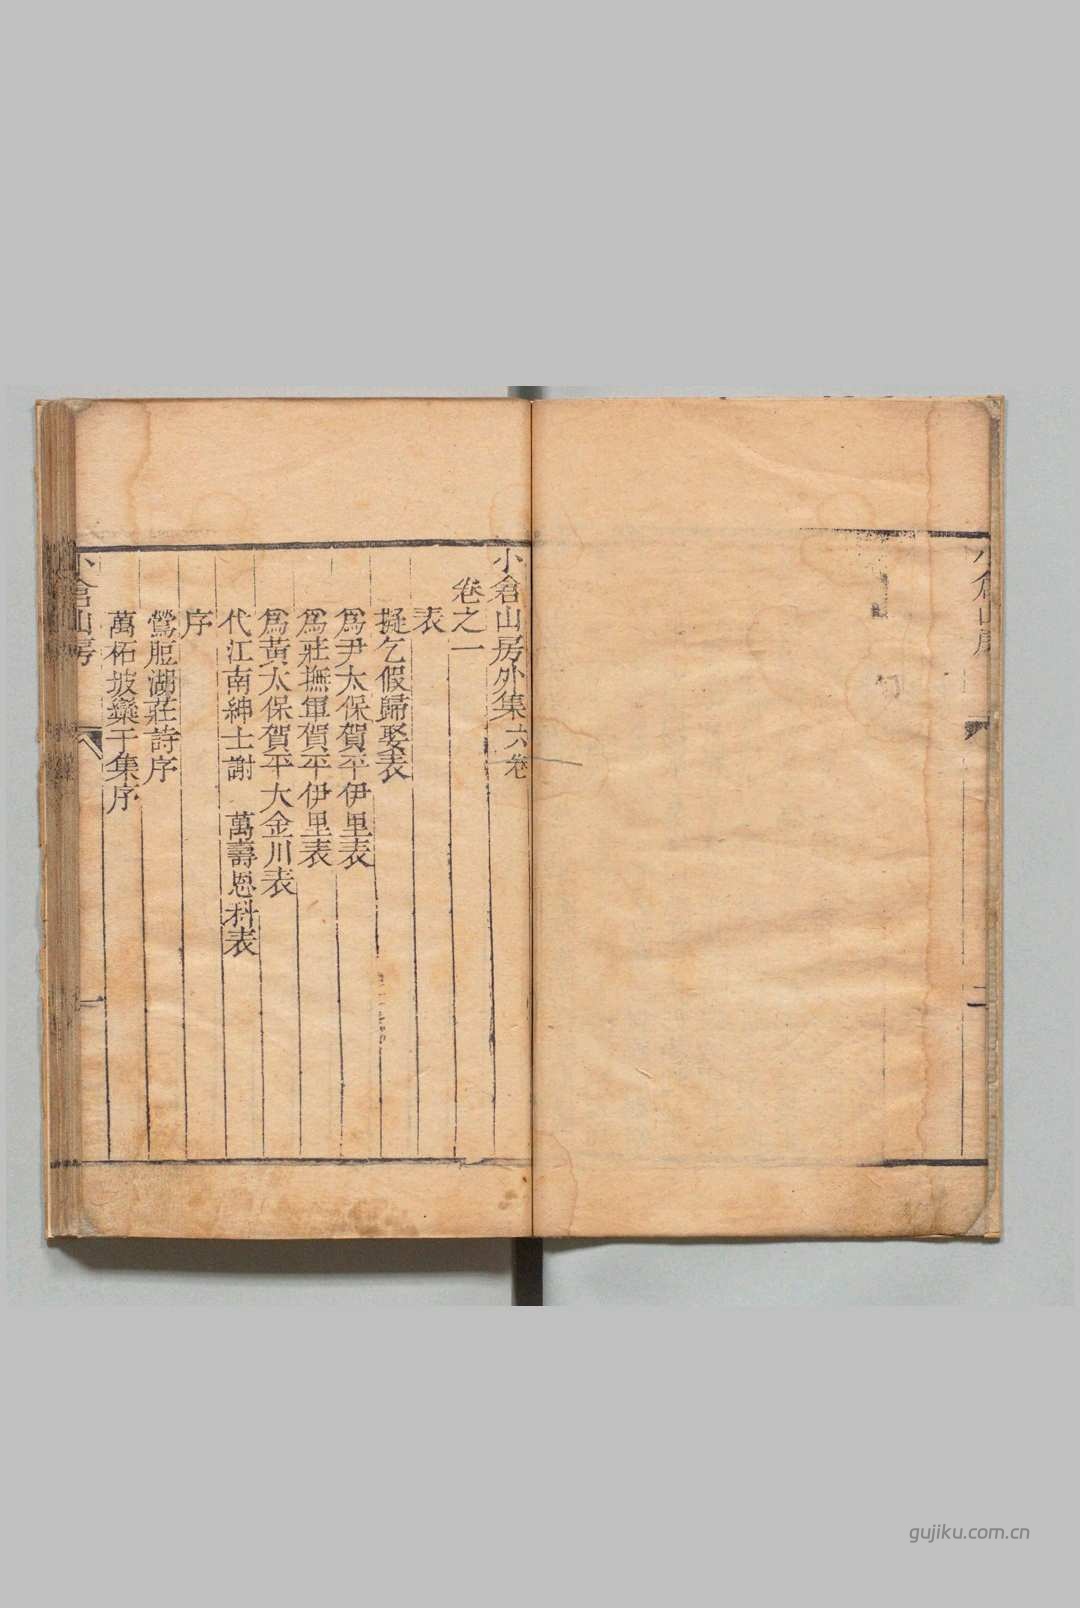 小倉山房
二
小倉山房外集 六卷
卷之一
表
擬乞假歸娶表
爲尹太保賀平伊里表
爲莊撫軍賀平伊里表
爲黃太保賀平大金川表
代江南紳士謝 萬壽恩科表
序
鶯脰湖莊詩序
萬柘坡欒于集序
小倉山房
一
gujiku.com.cn